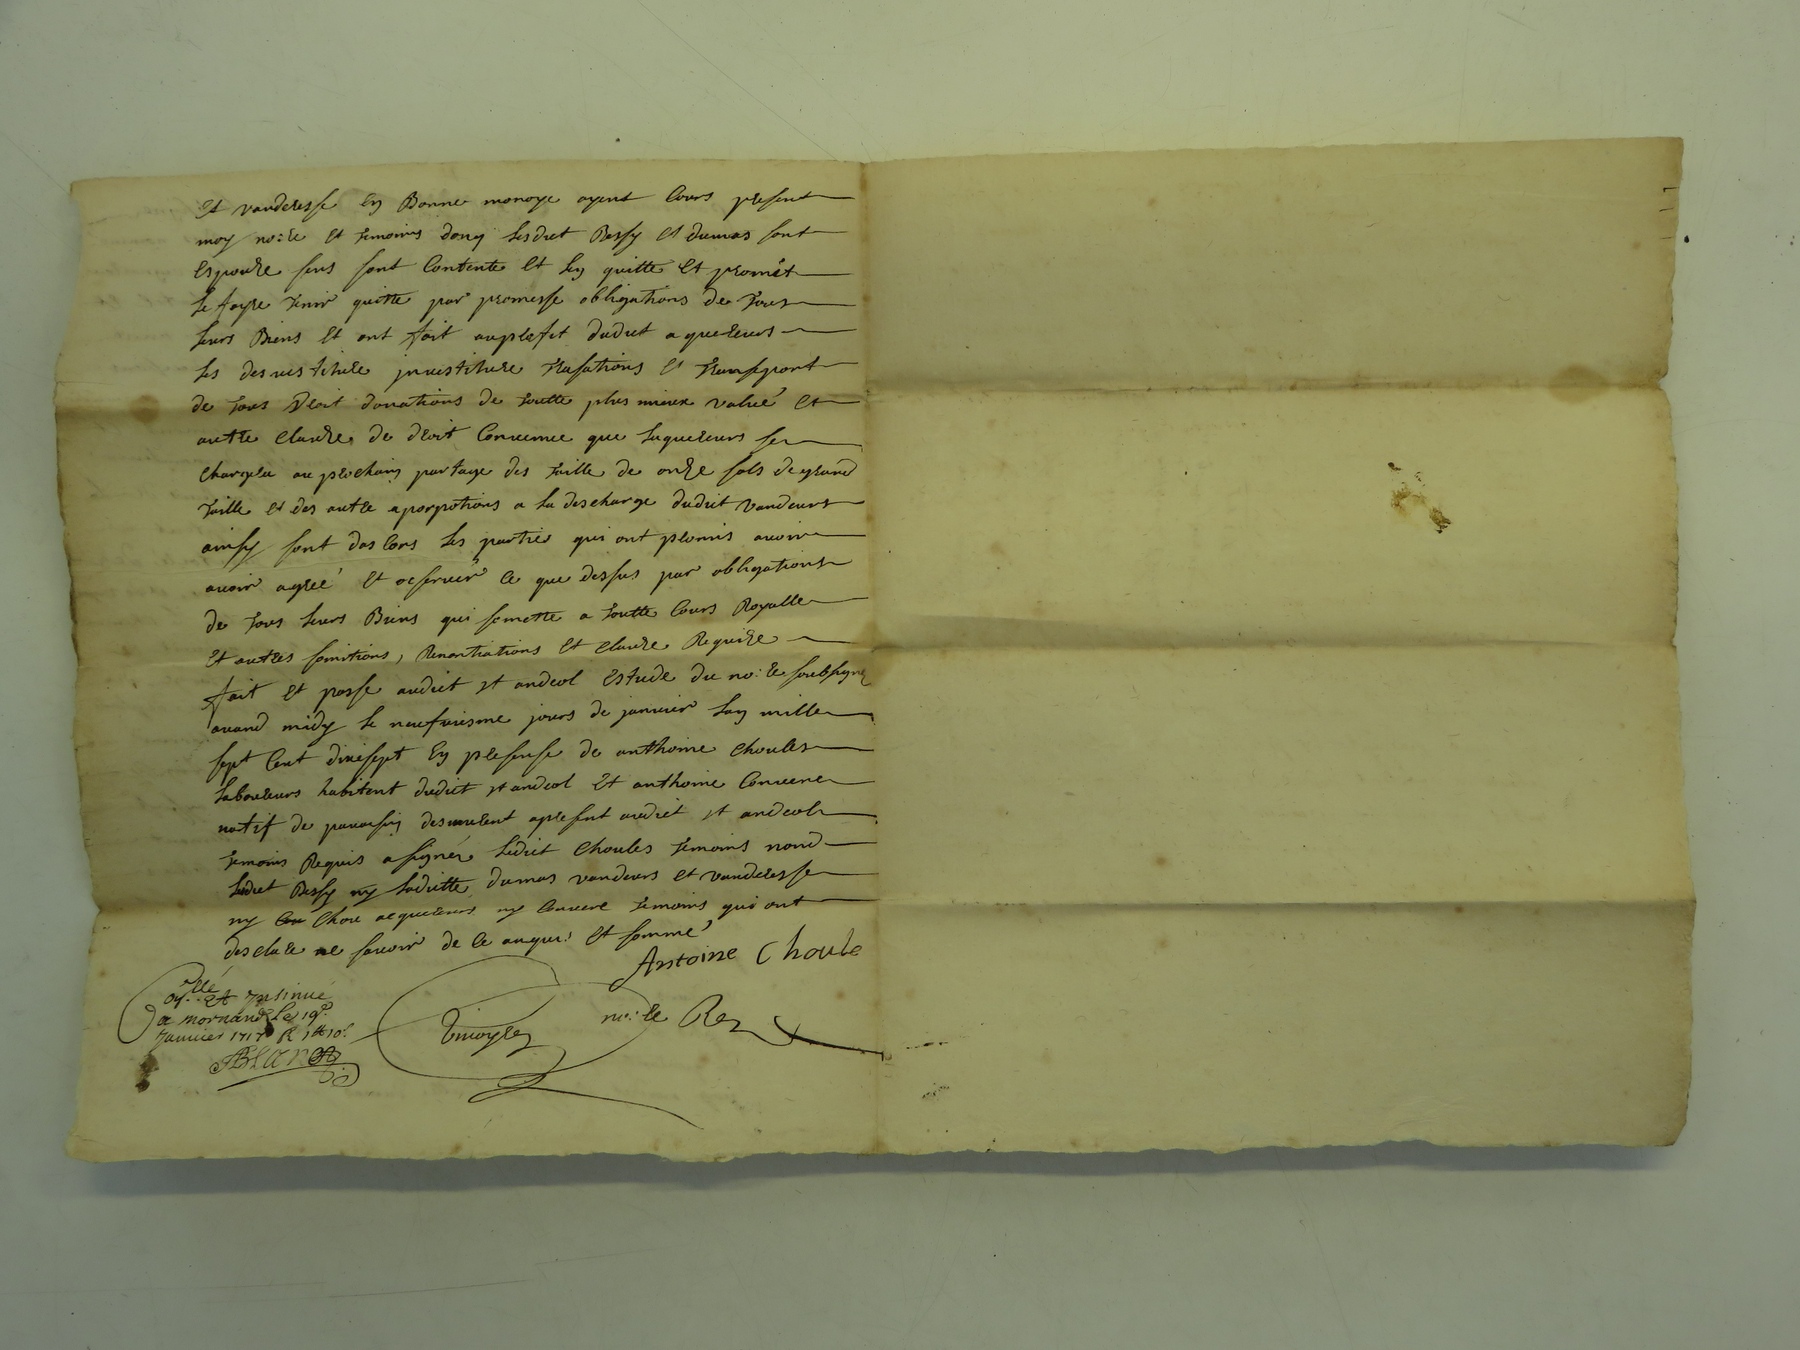 Et vanderesse En Bonne monoye ayent Cours present
moy no:re Et temoins dong lesdict Bessy Et dumas sont
Espouze sens sont Contente Et len quitte Et promèt
le fayre tenir quitte par promesse obligations de tous
leurs Biens Et ont fait au dudict aquereurs
les desvestiture jnvestiture Et transport
de tous droit donations de toutte plus mieux value Et
autre clauze de droit Convenue que laquereurs se
chargera au prochain partage des taille de onze sols de grand
taille Et des autre aporpotions a la descharge dudict vandeurs
ainsy sont das Cors les partiés qui ont promis avoir
avoir agreé Et observér Ce que dessus par obligations
de tous leurs Biens qui somette a toutte Cours Royalle
Et autres somitions, Renontiations Et clauze Requize
fait Et passe audict st andeol Estude du no:re soubsigne
avand midy le neufviesme jours de janvier lan mille
sept Cent dixesept En presense de anthoine choules
laboureurs habitent dudict st andeol Et anthoine
natif de desmeurent apresent audict st andeol
temoins Requis a signér ledict Choules temoins nond
ledict Bessy ny laditte dumas vandeurs et vanderesse
ny aquereurs ny temoins qui ont
desclare ne savoir de Ce anquis Et sommé
Antoine Choule
no:re Roy
Et Insinué
a mornand Le 19e
Janvier 1717 R 1tt 10s